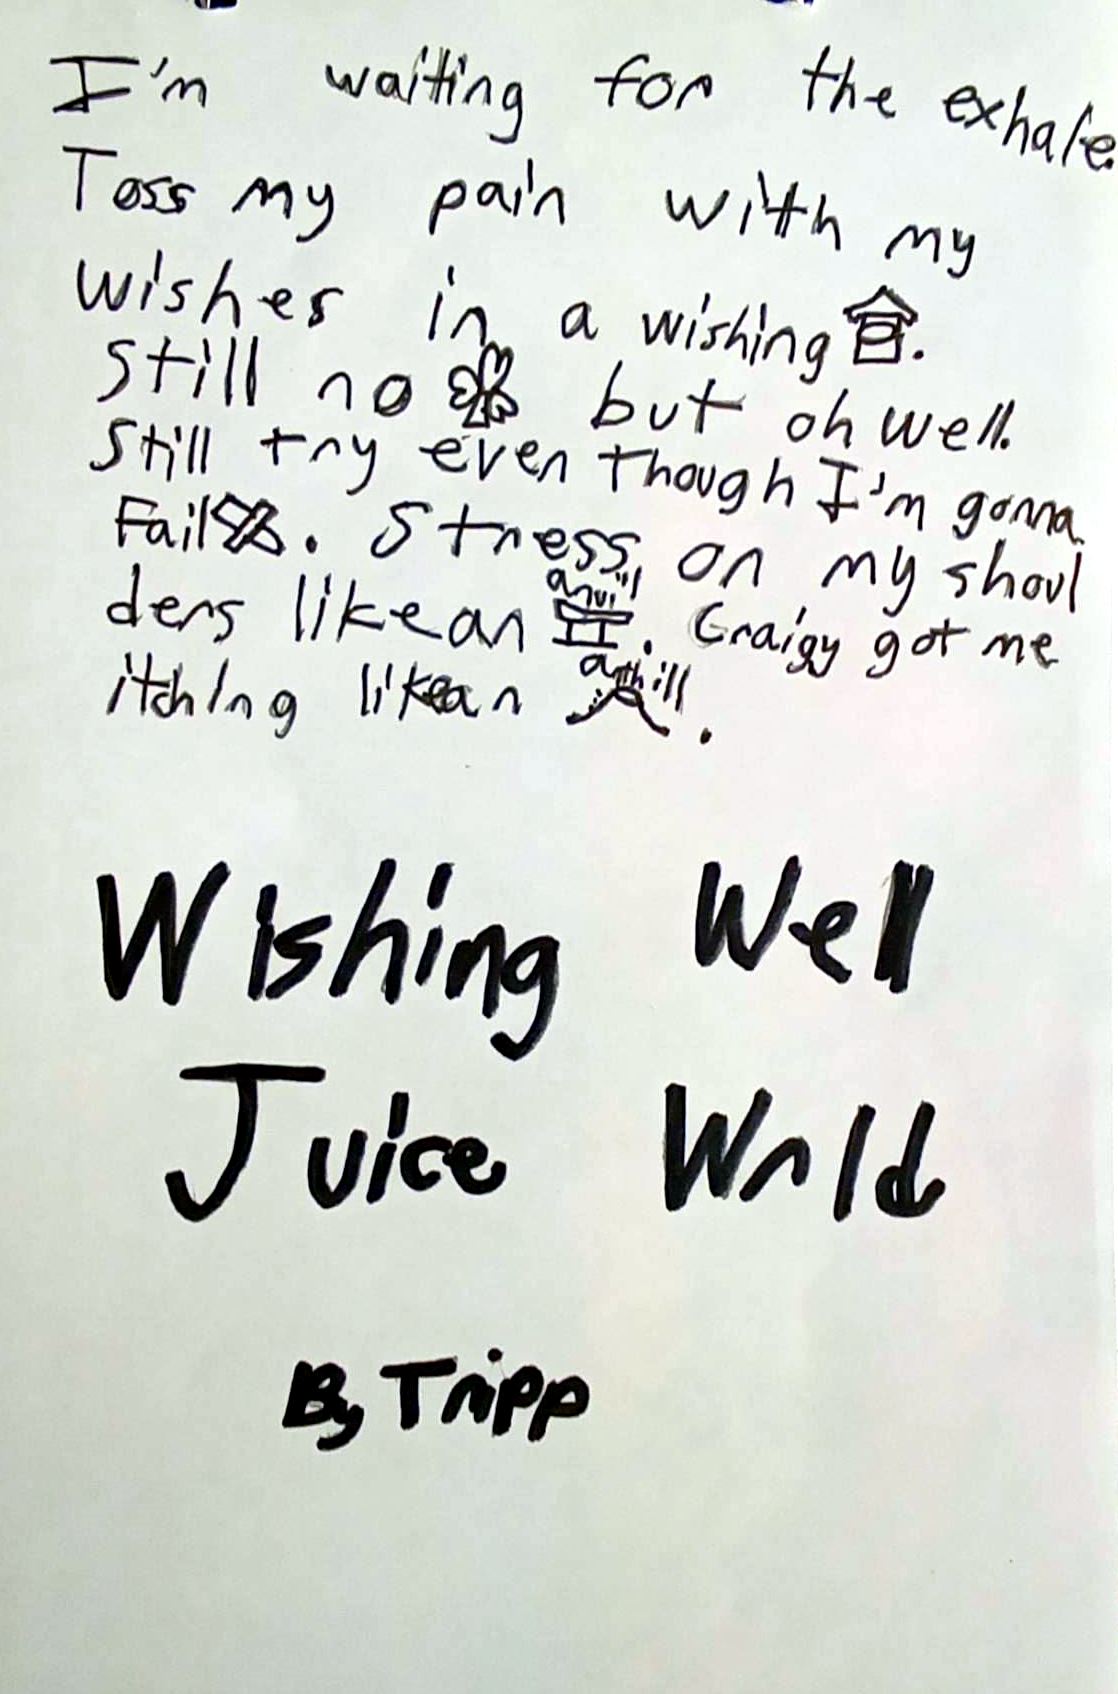 I'm waiting for the exhale.
Toss my pain with my
wishes in a wishing .
Still no but oh well.
Still try even though I'm gonna
Fail . Stress on my shoul
ders like an anvil . Craigy got me
itching like an anthill .
Wishing Well
Juice Wrld
By Tripp